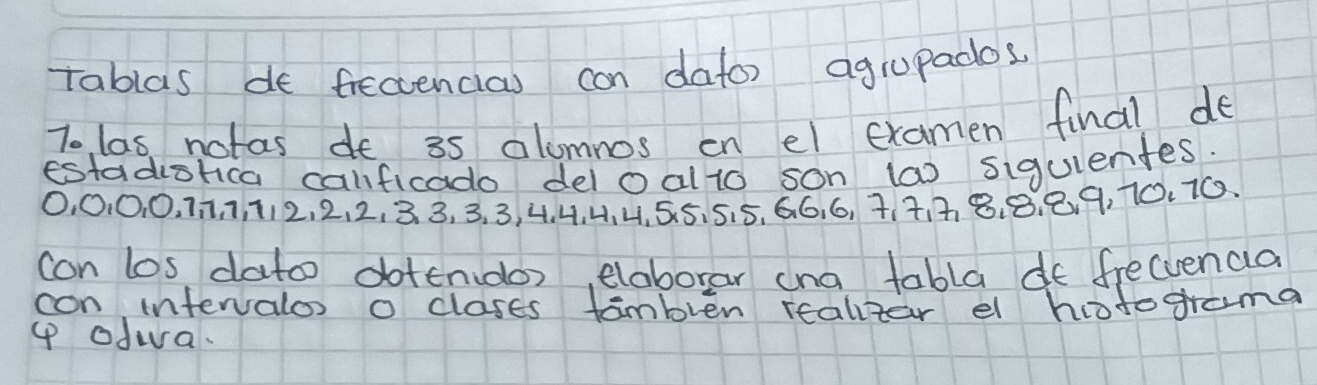 Tablas de frecuencias con datos agrupados.
1o las notas de 35 alumnos en el examen final de
estadistica calificado del 0 al 10 son las siguientes.
0,0,0,0,1,1,1,1,2,2,2,3,3,3,3,4,4,4,4,5,5,5,5,6,6,6,7,7,7,8,8,8,9,10,10.
con los datos obtenidos, elaborar una tabla de frecuencia
con intervalos o clases también realizar el histograma
y ojiva.